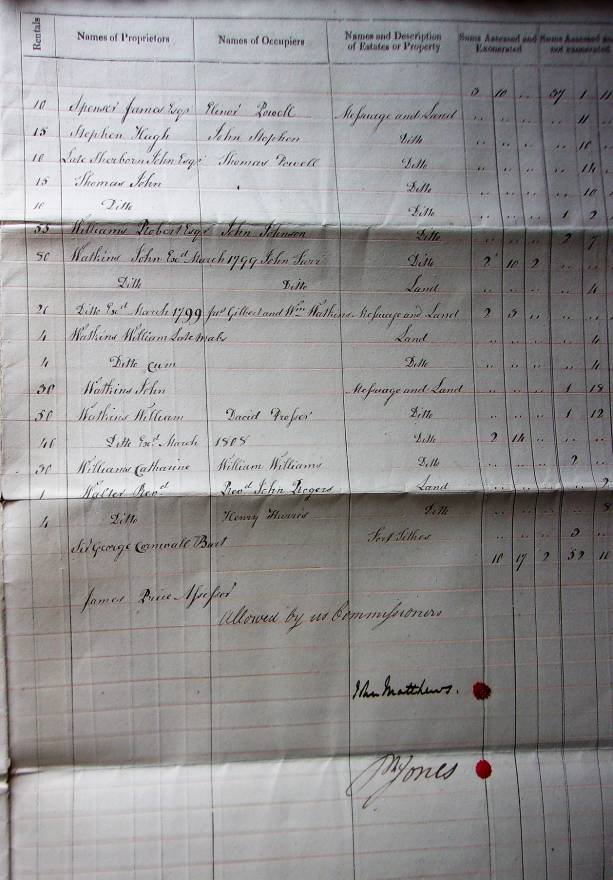 Rentals Names of Proprietors Names of Occupiers Names and Description of Estates or Property Sums Assessed and Exonerated Sums Assessed and not exonerated
3 10 .. 37 1 11
10 Spenser James Esqr Elinor Powell Messuage and Land .. .. .. .. 11
15 Stephen Hugh John Stephen Ditto .. .. .. .. 10
10 Late Sherborn John Esqr Thomas Powell Ditto .. .. .. .. 14
15 Thomas John Ditto .. .. .. .. 10
10 Ditto Ditto .. .. .. .. 1 2
55 Williams Robert Esqr John Johnson Ditto .. .. .. .. 2 7
80 Watkins John Exd March 1799 John Ditto 2 10 2 .. ..
Ditto Ditto Land .. .. .. .. .. 4
Ditto Exd March 1799 Jas Gilbert and Wm Watkins Messuage and Land 2 3 .. .. ..
4 Watkins William Late Land .. .. .. .. .. 4
4 Ditto cum Ditto .. .. .. .. .. 4
30 Watkins John Messuage and Land .. .. .. .. 1 18
50 Watkins William David Prosser Ditto .. .. .. .. 1 12
46 Ditto Exd March 1808 Ditto 2 14 .. .. ..
30 Williams Catharine William Williams Ditto .. .. .. .. 2 ..
1 Walter Revd Revd John Rogers Land .. .. .. .. .. 2
4 Ditto Henry Harris Ditto .. .. .. .. .. 8
Sir George Cornwall Bart Tithes .. .. .. .. 3 ..
10 17 2 52 10
James Price Assessor
Allowed by us Commissioners
John Matthews.
Jones